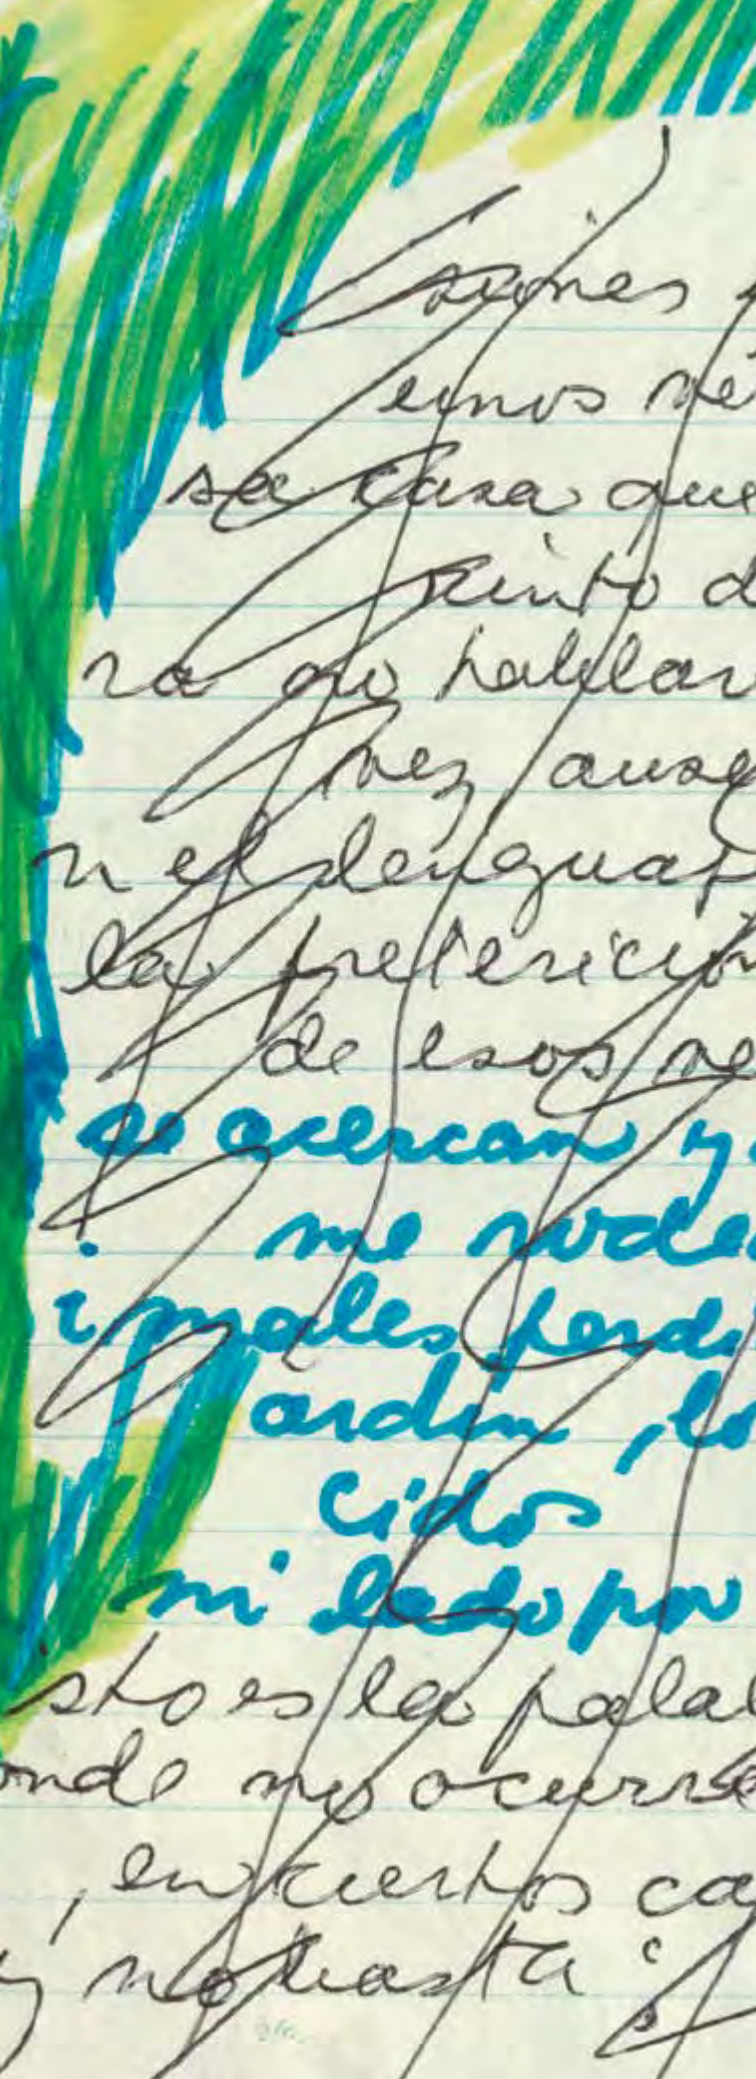 siones
emos ve
sa casa que
siento d
ra no hablar
vez ause
n el lenguaj
la preterición
de esos ve
se acercan y
me rodea
imales perdi
ardín, lo
cidos
mi lado por
sto es la palab
onde no ocurre
, en ciertos ca
y no basta: